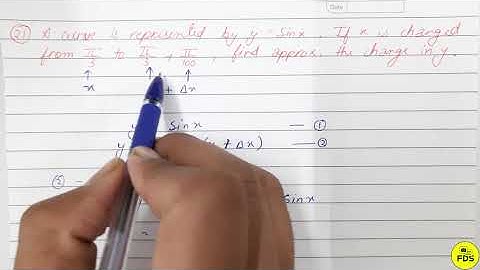 Date
21) A curve is represented by y = Sin x. If x is changed
from π/3 to π/3 + π/100, find approx. the change in y.
↑ ↑ ↑
x + Δx
y Sin x — ①
y + Δx) — ②
② - Sin x
=
FDS